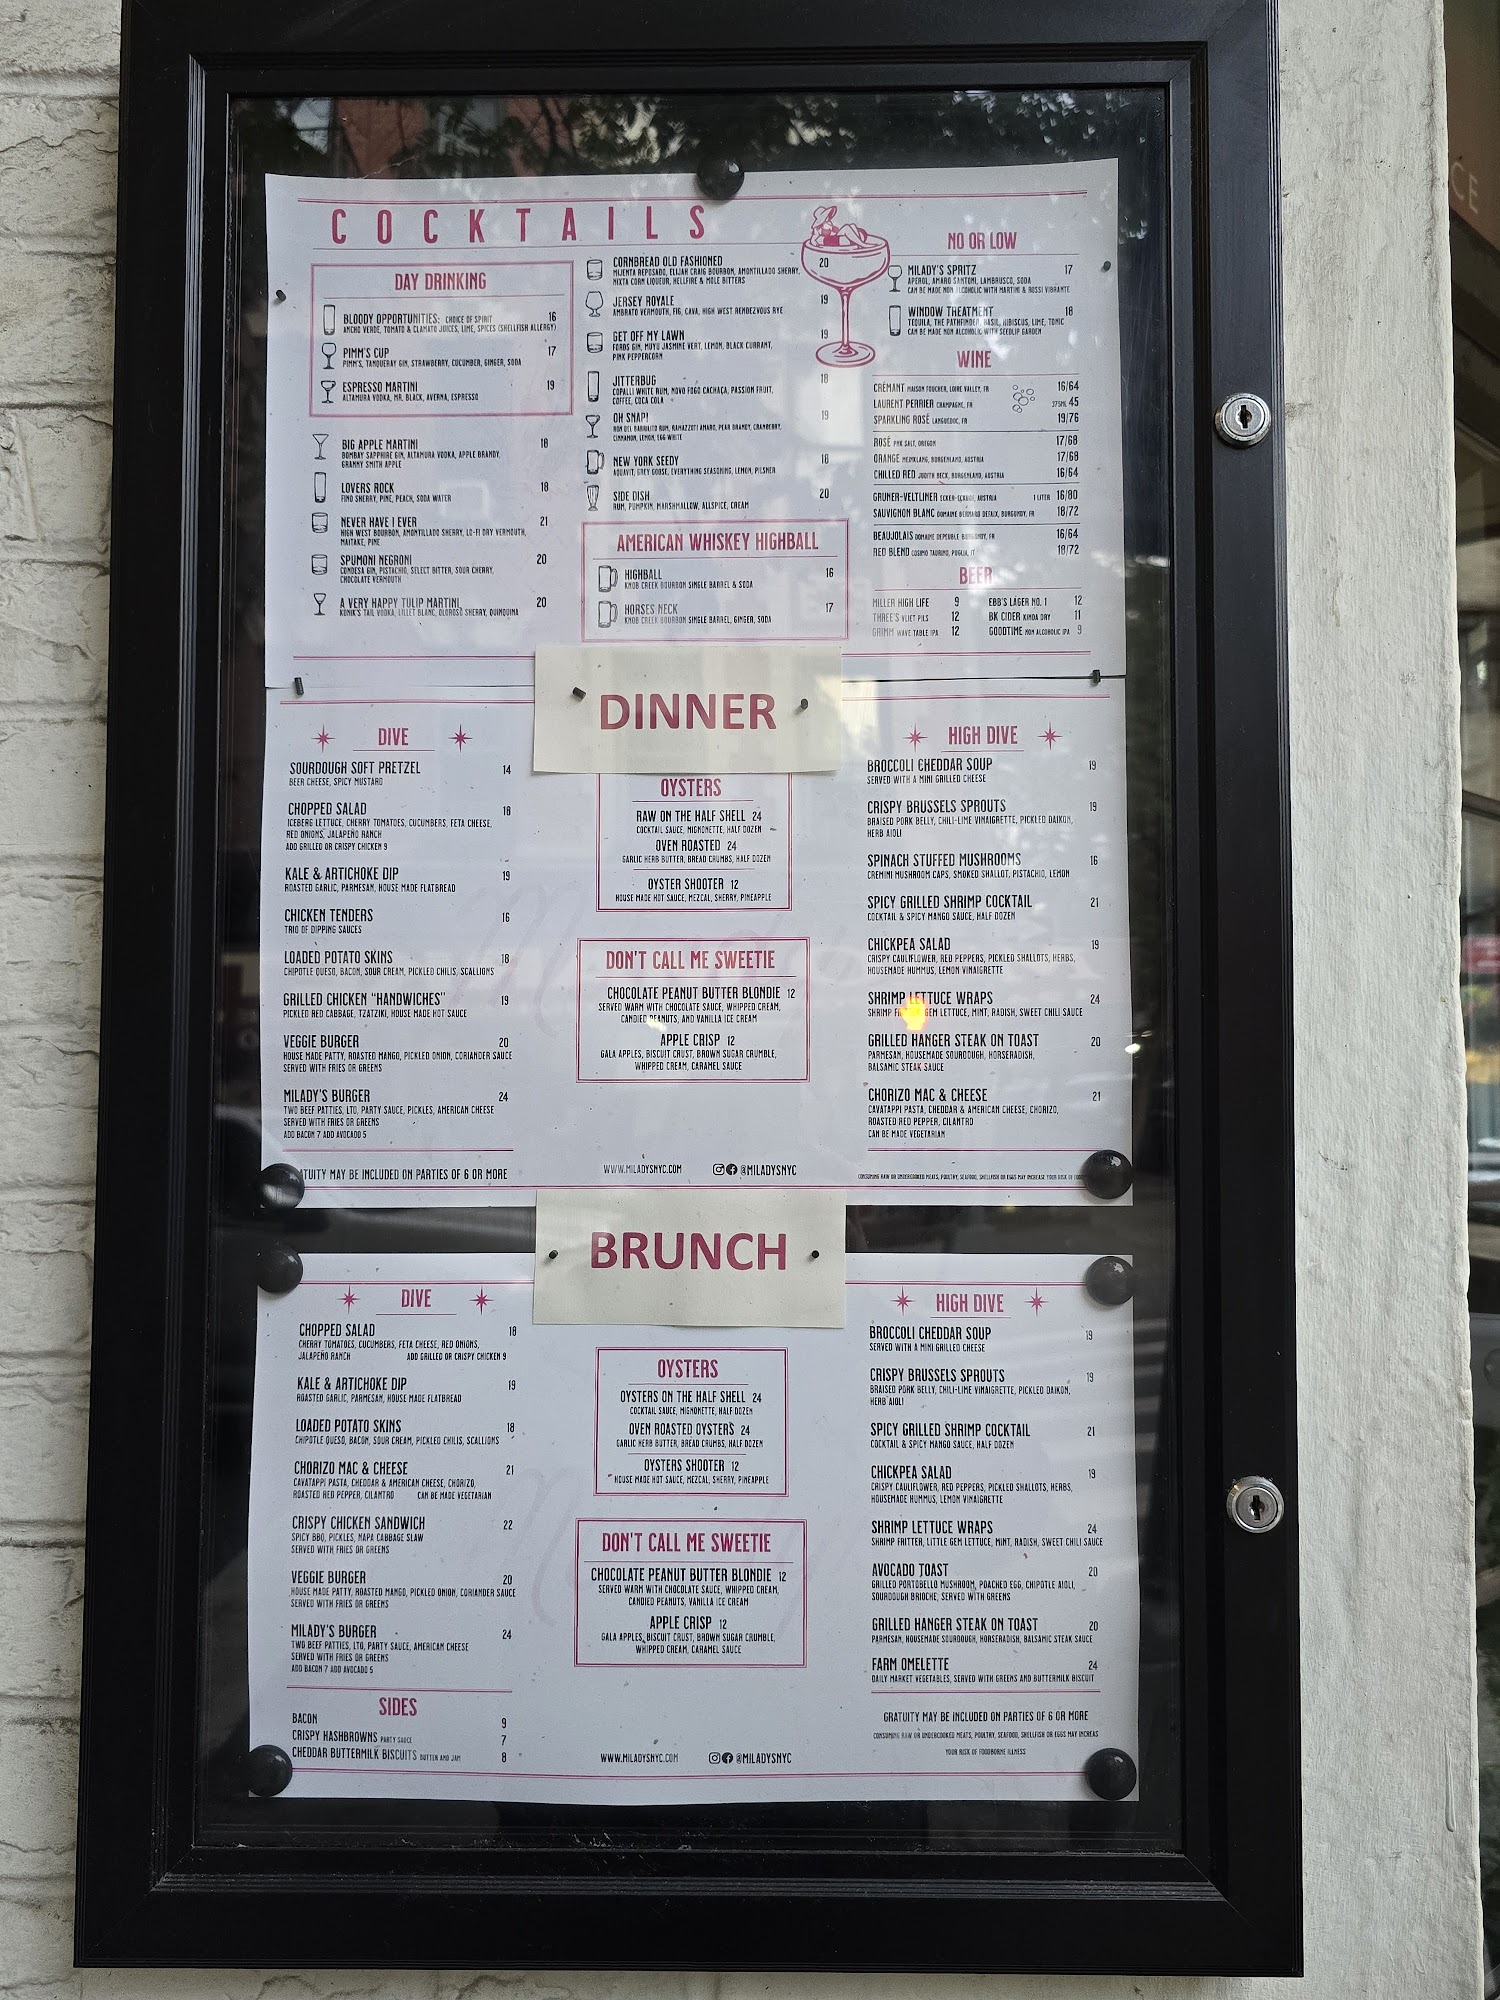 COCKTAILS
DAY DRINKING
BLOODY OPPORTUNITIES: CHOICE OF SPIRIT 16
ANCHO VERDE, TOMATO & CLAMATO JUICES, LIME, SPICES (SHELLFISH ALLERGY)
PIMM'S CUP 17
PIMM'S, TANQUERAY GIN, STRAWBERRY, CUCUMBER, GINGER, SODA
ESPRESSO MARTINI 19
ALTAMURA VODKA, MR. BLACK, AVERNA, ESPRESSO
BIG APPLE MARTINI 18
BOMBAY SAPPHIRE GIN, ALTAMURA VODKA, APPLE BRANDY,
GRANNY SMITH APPLE
LOVERS ROCK 18
FINO SHERRY, PINE, PEACH, SODA WATER
NEVER HAVE I EVER 21
HIGH WEST BOURBON, AMONTILLADO SHERRY, LO-FI DRY VERMOUTH,
MAITAKE, PINE
SPUMONI NEGRONI 20
CONDESA GIN, PISTACHIO, SELECT BITTER, SOUR CHERRY,
CHOCOLATE VERMOUTH
A VERY HAPPY TULIP MARTINI 20
KONIK'S TAIL VODKA, LILLET BLANC, OLOROSO SHERRY, QUINQUINA
CORNBREAD OLD FASHIONED 20
MIJENTA REPOSADO, ELIJAH CRAIG BOURBON, AMONTILLADO SHERRY,
NIXTA CORN LIQUEUR, HELLFIRE & MOLE BITTERS
JERSEY ROYALE 19
AMBRATO VERMOUTH, FIG, CAVA, HIGH WEST RENDEZVOUS RYE
GET OFF MY LAWN 19
FORDS GIN, MUYU JASMINE VERT, LEMON, BLACK CURRANT,
PINK PEPPERCORN
JITTERBUG 18
COPALLI WHITE RUM, NOVO FOGO CACHAÇA, PASSION FRUIT,
COFFEE, COCA COLA
OH SNAP! 19
RON DEL BARRILITO RUM, RAMAZZOTI AMARO, PEAR BRANDY, CRANBERRY,
CINNAMON, LEMON, EGG WHITE
NEW YORK SEEDY 18
AQUAVIT, GREY GOOSE, EVERYTHING SEASONING, LEMON, PILSNER
SIDE DISH 20
RUM, PUMPKIN, MARSHMALLOW, ALLSPICE, CREAM
AMERICAN WHISKEY HIGHBALL
HIGHBALL 16
KNOB CREEK BOURBON SINGLE BARREL & SODA
HORSES NECK 17
KNOB CREEK BOURBON SINGLE BARREL, GINGER, SODA
NO OR LOW
MILADY'S SPRITZ 17
APEROL, AMARO SANTONI, LAMBRUSCO, SODA
CAN BE MADE NON ALCOHOLIC WITH MARTINI & ROSSI VIBRANTE
WINDOW THEATMENT 18
TEQUILA, THE PATHFINDER, BASIL, HIBISCUS, LIME, TONIC
CAN BE MADE NON ALCOHOLIC WITH SEEDLIP GARDEN
WINE
CRÉMANT MAISON FOUCHER, LOIRE VALLEY, FR 16/64
LAURENT PERRIER CHAMPAGNE, FR 375ML 45
SPARKLING ROSÉ LANGUEDOC, FR 19/76
ROSÉ PNK SALT, OREGON 17/68
ORANGE MEINKLANG, BURGENLAND, AUSTRIA 17/68
CHILLED RED JUDITH BECK, BURGENLAND, AUSTRIA 16/64
GRUNER-VELTLINER ECKER-ECKHOF, AUSTRIA 1 LITER 16/80
SAUVIGNON BLANC DOMAINE BERNARD DEFAIX, BURGUNDY, FR 18/72
BEAUJOLAIS DOMAINE DEPEUBLE, BURGUNDY, FR 16/64
RED BLEND COSIMO TAURINO, PUGLIA, IT 18/72
BEER
MILLER HIGH LIFE 9 EBB'S LAGER NO. 1 12
THREE'S VLIET PILS 12 BK CIDER KINDA DRY 11
GRIMM WAVE TABLE IPA 12 GOODTIME NON ALCOHOLIC IPA 9
DINNER
DIVE
SOURDOUGH SOFT PRETZEL 14
BEER CHEESE, SPICY MUSTARD
CHOPPED SALAD 18
ICEBERG LETTUCE, CHERRY TOMATOES, CUCUMBERS, FETA CHEESE,
RED ONIONS, JALAPEÑO RANCH
ADD GRILLED OR CRISPY CHICKEN 9
KALE & ARTICHOKE DIP 19
ROASTED GARLIC, PARMESAN, HOUSE MADE FLATBREAD
CHICKEN TENDERS 16
TRIO OF DIPPING SAUCES
LOADED POTATO SKINS 18
CHIPOTLE QUESO, BACON, SOUR CREAM, PICKLED CHILIS, SCALLIONS
GRILLED CHICKEN "HANDWICHES" 19
PICKLED RED CABBAGE, TZATZIKI, HOUSE MADE HOT SAUCE
VEGGIE BURGER 20
HOUSE MADE PATTY, ROASTED MANGO, PICKLED ONION, CORIANDER SAUCE
SERVED WITH FRIES OR GREENS
MILADY'S BURGER 24
TWO BEEF PATTIES, LTO, PARTY SAUCE, PICKLES, AMERICAN CHEESE
SERVED WITH FRIES OR GREENS
ADD BACON 7 ADD AVOCADO 5
TUITY MAY BE INCLUDED ON PARTIES OF 6 OR MORE
OYSTERS
RAW ON THE HALF SHELL 24
COCKTAIL SAUCE, MIGNONETTE, HALF DOZEN
OVEN ROASTED 24
GARLIC HERB BUTTER, BREAD CRUMBS, HALF DOZEN
OYSTER SHOOTER 12
HOUSE MADE HOT SAUCE, MEZCAL, SHERRY, PINEAPPLE
DON'T CALL ME SWEETIE
CHOCOLATE PEANUT BUTTER BLONDIE 12
SERVED WARM WITH CHOCOLATE SAUCE, WHIPPED CREAM,
CANDIED PEANUTS, AND VANILLA ICE CREAM
APPLE CRISP 12
GALA APPLES, BISCUIT CRUST, BROWN SUGAR CRUMBLE,
WHIPPED CREAM, CARAMEL SAUCE
WWW.MILADYSNYC.COM @MILADYSNYC
HIGH DIVE
BROCCOLI CHEDDAR SOUP 19
SERVED WITH A MINI GRILLED CHEESE
CRISPY BRUSSELS SPROUTS 19
BRAISED PORK BELLY, CHILI-LIME VINAIGRETTE, PICKLED DAIKON,
HERB AIOLI
SPINACH STUFFED MUSHROOMS 16
CREMINI MUSHROOM CAPS, SMOKED SHALLOT, PISTACHIO, LEMON
SPICY GRILLED SHRIMP COCKTAIL 21
COCKTAIL & SPICY MANGO SAUCE, HALF DOZEN
CHICKPEA SALAD 19
CRISPY CAULIFLOWER, RED PEPPERS, PICKLED SHALLOTS, HERBS,
HOUSEMADE HUMMUS, LEMON VINAIGRETTE
SHRIMP LETTUCE WRAPS 24
SHRIMP GEM LETTUCE, MINT, RADISH, SWEET CHILI SAUCE
GRILLED HANGER STEAK ON TOAST 20
PARMESAN, HOUSEMADE SOURDOUGH, HORSERADISH,
BALSAMIC STEAK SAUCE
CHORIZO MAC & CHEESE 21
CAVATAPPI PASTA, CHEDDAR & AMERICAN CHEESE, CHORIZO,
ROASTED RED PEPPER, CILANTRO
CAN BE MADE VEGETARIAN
CONSUMING RAW OR UNDERCOOKED MEATS, POULTRY, SEAFOOD, SHELLFISH OR EGGS MAY INCREASE YOUR RISK OF
BRUNCH
DIVE
CHOPPED SALAD 18
CHERRY TOMATOES, CUCUMBERS, FETA CHEESE, RED ONIONS,
JALAPEÑO RANCH ADD GRILLED OR CRISPY CHICKEN 9
KALE & ARTICHOKE DIP 19
ROASTED GARLIC, PARMESAN, HOUSE MADE FLATBREAD
LOADED POTATO SKINS 18
CHIPOTLE QUESO, BACON, SOUR CREAM, PICKLED CHILIS, SCALLIONS
CHORIZO MAC & CHEESE 21
CAVATAPPI PASTA, CHEDDAR & AMERICAN CHEESE, CHORIZO,
ROASTED RED PEPPER, CILANTRO CAN BE MADE VEGETARIAN
CRISPY CHICKEN SANDWICH 22
SPICY BBQ, PICKLES, NAPA CABBAGE SLAW
SERVED WITH FRIES OR GREENS
VEGGIE BURGER 20
HOUSE MADE PATTY, ROASTED MANGO, PICKLED ONION, CORIANDER SAUCE
SERVED WITH FRIES OR GREENS
MILADY'S BURGER 24
TWO BEEF PATTIES, LTO, PARTY SAUCE, AMERICAN CHEESE
SERVED WITH FRIES OR GREENS
ADD BACON 7 ADD AVOCADO 5
SIDES
BACON 9
CRISPY HASHBROWNS PARTY SAUCE 7
CHEDDAR BUTTERMILK BISCUITS BUTTER AND JAM 8
OYSTERS
OYSTERS ON THE HALF SHELL 24
COCKTAIL SAUCE, MIGNONETTE, HALF DOZEN
OVEN ROASTED OYSTERS 24
GARLIC HERB BUTTER, BREAD CRUMBS, HALF DOZEN
OYSTERS SHOOTER 12
HOUSE MADE HOT SAUCE, MEZCAL, SHERRY, PINEAPPLE
DON'T CALL ME SWEETIE
CHOCOLATE PEANUT BUTTER BLONDIE 12
SERVED WARM WITH CHOCOLATE SAUCE, WHIPPED CREAM,
CANDIED PEANUTS, VANILLA ICE CREAM
APPLE CRISP 12
GALA APPLES, BISCUIT CRUST, BROWN SUGAR CRUMBLE,
WHIPPED CREAM, CARAMEL SAUCE
WWW.MILADYSNYC.COM @MILADYSNYC
HIGH DIVE
BROCCOLI CHEDDAR SOUP 19
SERVED WITH A MINI GRILLED CHEESE
CRISPY BRUSSELS SPROUTS 19
BRAISED PORK BELLY, CHILI-LIME VINAIGRETTE, PICKLED DAIKON,
HERB AIOLI
SPICY GRILLED SHRIMP COCKTAIL 21
COCKTAIL & SPICY MANGO SAUCE, HALF DOZEN
CHICKPEA SALAD 19
CRISPY CAULIFLOWER, RED PEPPERS, PICKLED SHALLOTS, HERBS,
HOUSEMADE HUMMUS, LEMON VINAIGRETTE
SHRIMP LETTUCE WRAPS 24
SHRIMP FRITTER, LITTLE GEM LETTUCE, MINT, RADISH, SWEET CHILI SAUCE
AVOCADO TOAST 20
GRILLED PORTOBELLO MUSHROOM, POACHED EGG, CHIPOTLE AIOLI,
SOURDOUGH BRIOCHE, SERVED WITH GREENS
GRILLED HANGER STEAK ON TOAST 20
PARMESAN, HOUSEMADE SOURDOUGH, HORSERADISH, BALSAMIC STEAK SAUCE
FARM OMELETTE 24
DAILY MARKET VEGETABLES, SERVED WITH GREENS AND BUTTERMILK BISCUIT
GRATUITY MAY BE INCLUDED ON PARTIES OF 6 OR MORE
CONSUMING RAW OR UNDERCOOKED MEATS, POULTRY, SEAFOOD, SHELLFISH OR EGGS MAY INCREAS
YOUR RISK OF FOODBORNE ILLNESS
CE